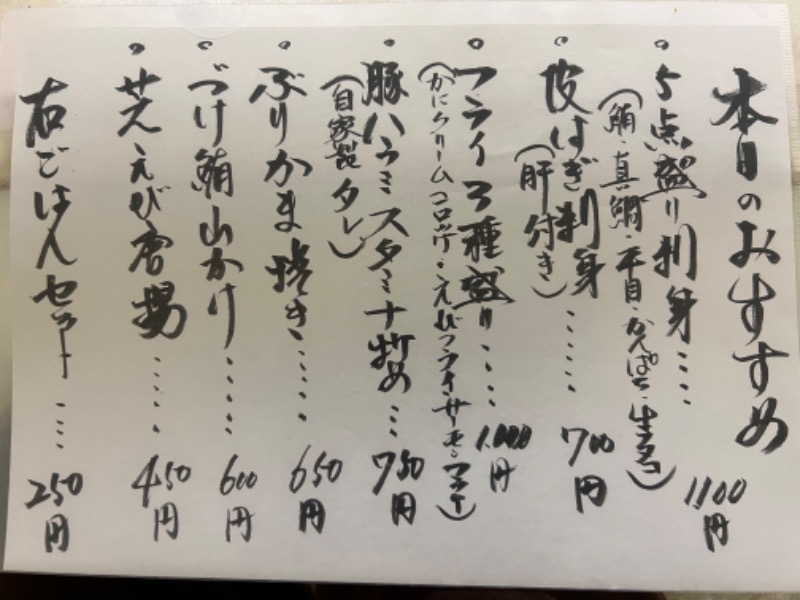 本日のおすすめ
・5点盛り刺身・・・・1,100円
(鮪・真鯛・平目・かんぱち・生タコ)
・皮はぎ刺身・・・・・700円
(肝付き)
・フライ3種盛り・・・・1,000円
(かにクリームコロッケ・えびフライ・サーモンフライ)
・豚ハラミスタミナ炒め・・・750円
(自家製タレ)
・ぶりかま焼き・・・・・650円
・づけ鮪山かけ・・・・・600円
・芝えび唐揚・・・・・450円
右ごはんセット・・・・250円